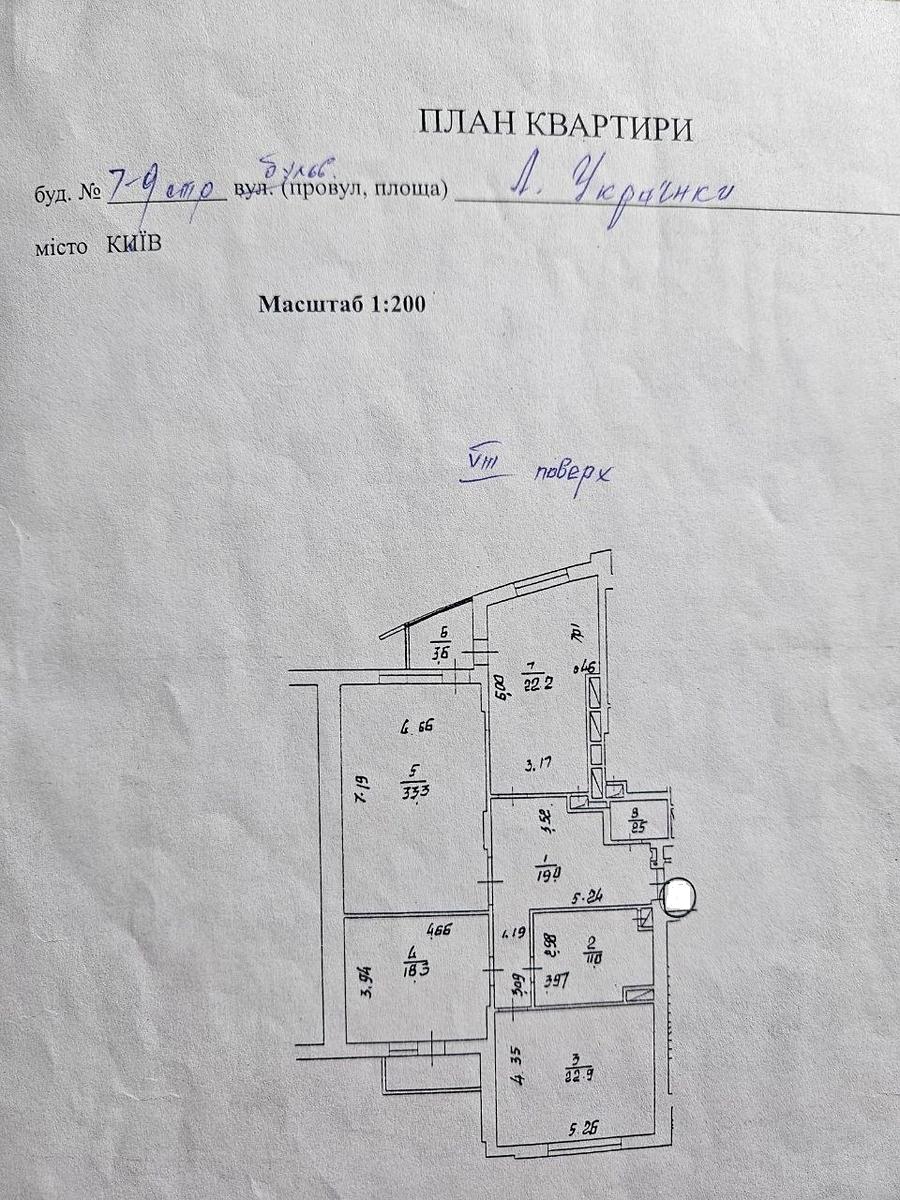 ПЛАН КВАРТИРИ
бульв.
буд. № 7-9 вул. (провул, площа) Л. Українки
місто КИЇВ
Масштаб 1:200
VIII поверх
6
3.6
7
22.2
0.46
6.00
3.17
4.66
5
33.3
7.19
3.52
8
2.5
1
19.0
5.24
4.66
4
18.3
3.94
1.19
2.98
2
11.0
3.97
3.09
4.35
3
22.9
5.26